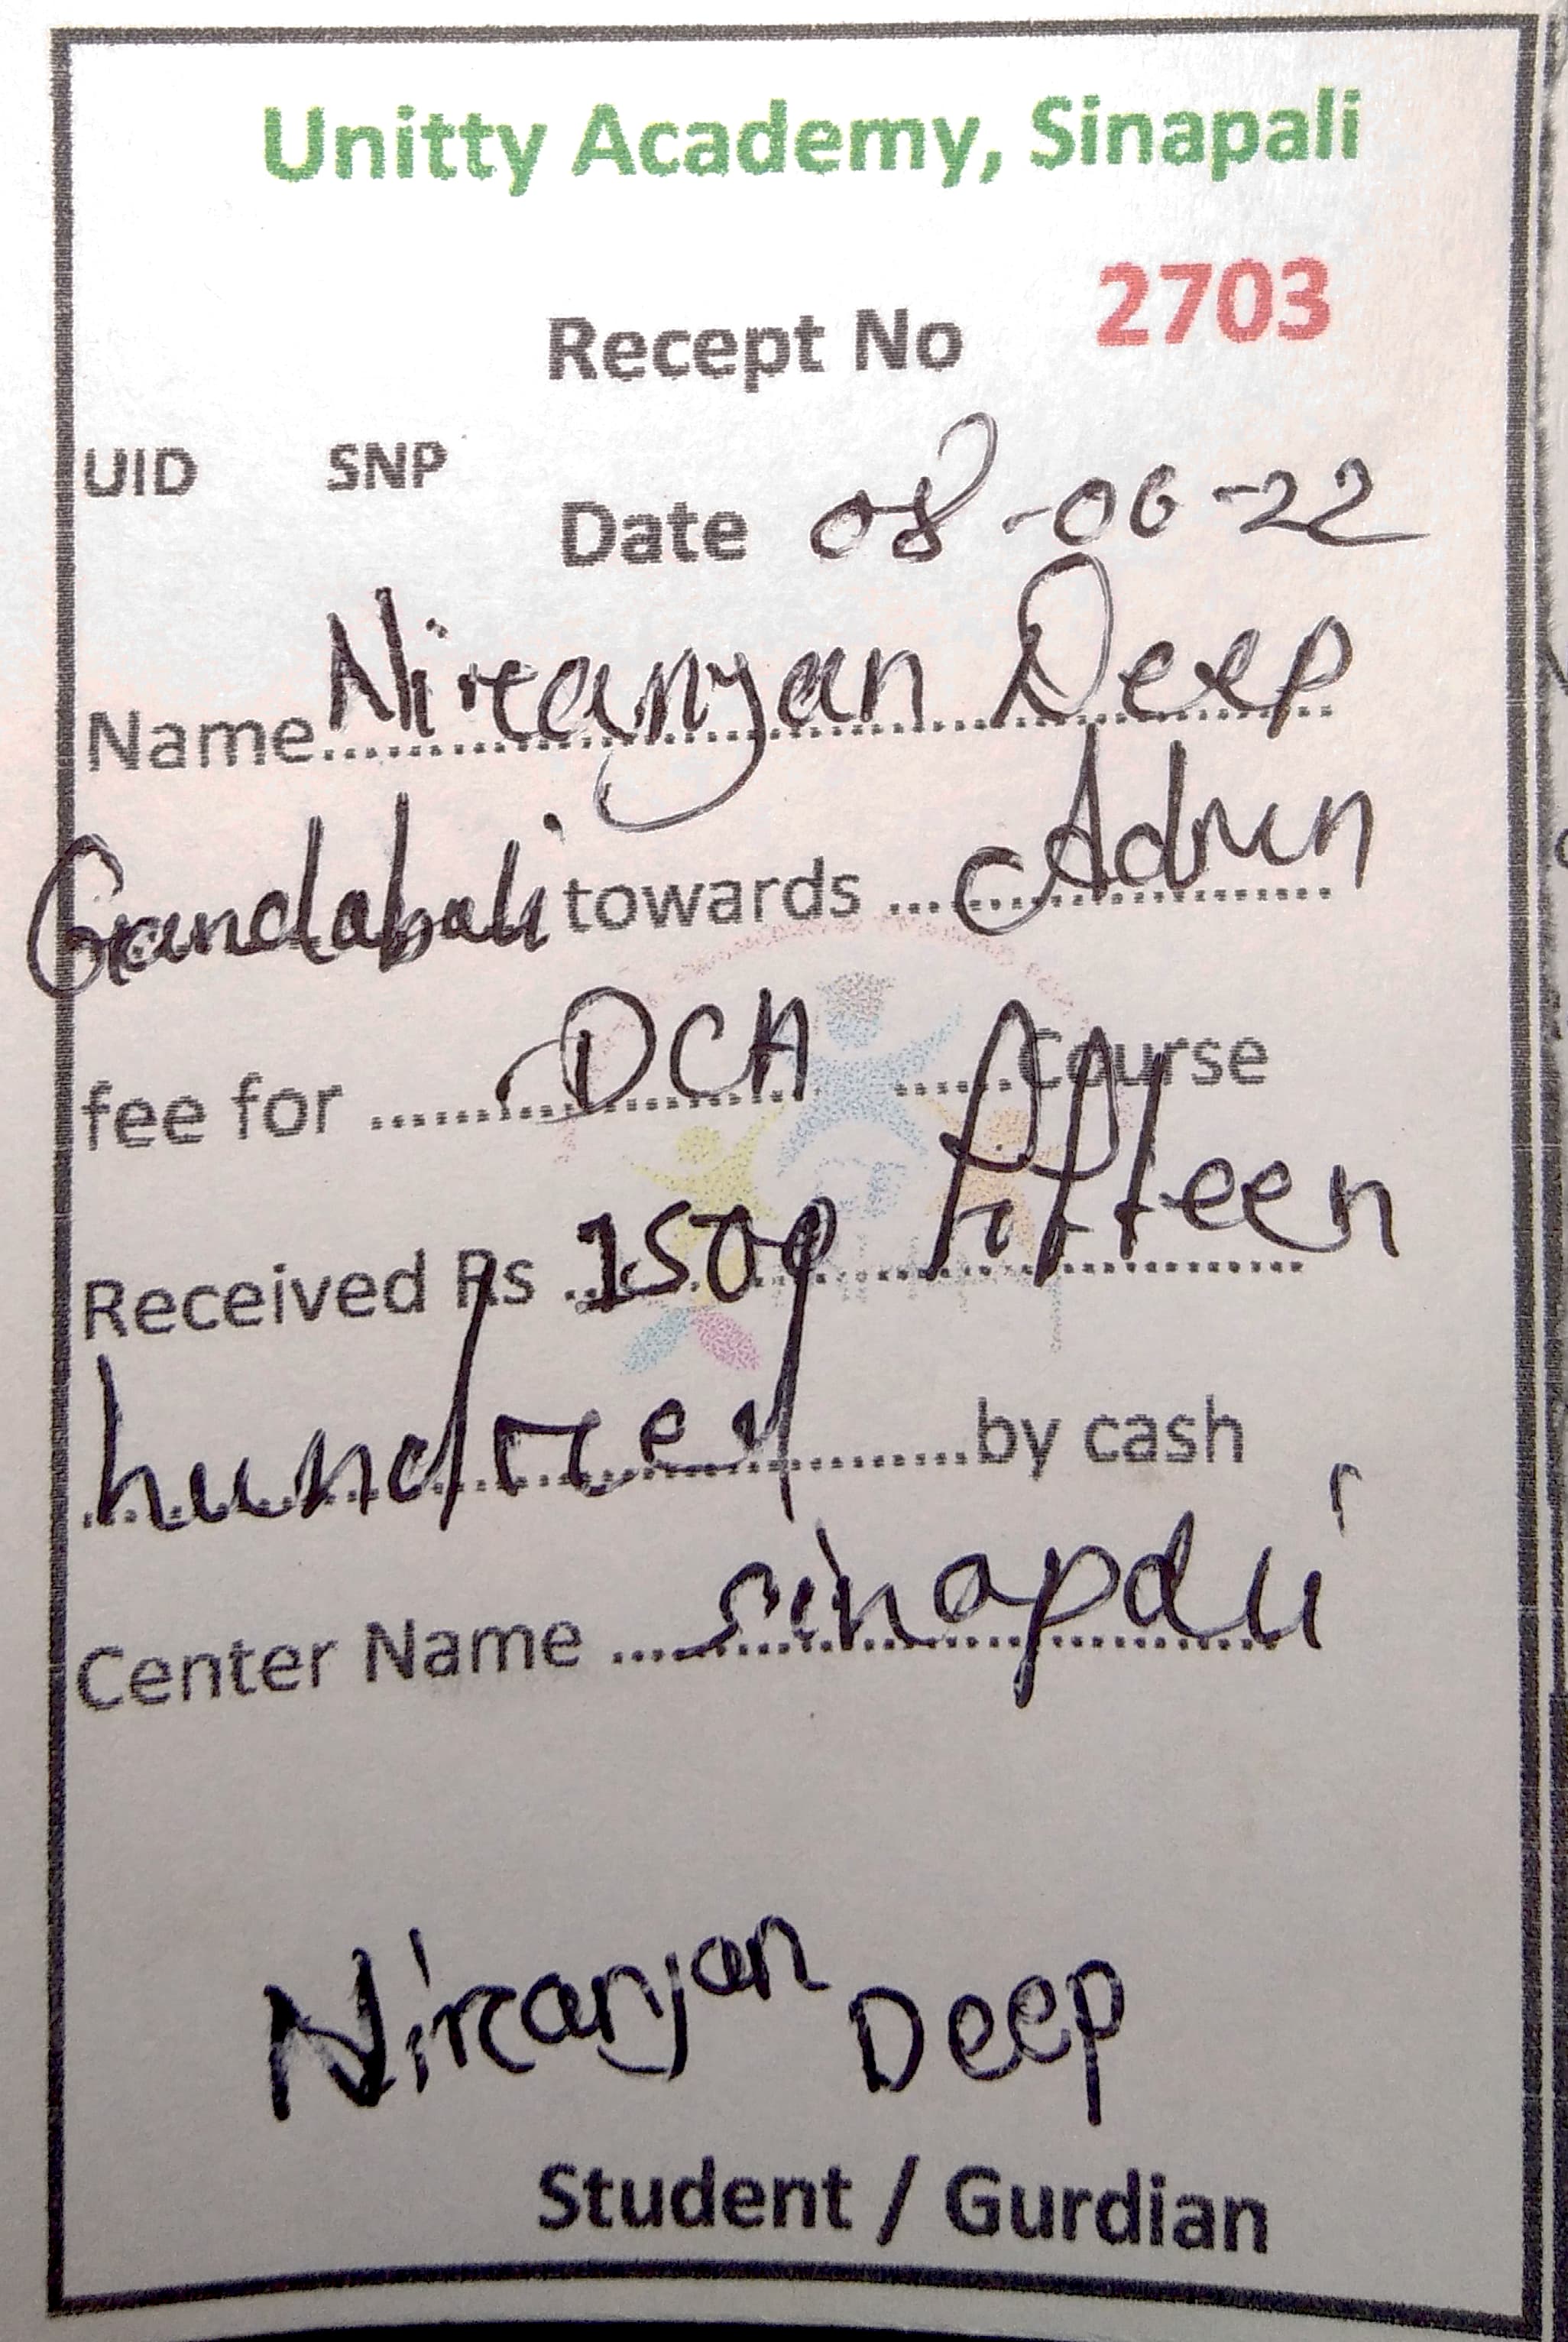 Unitty Academy, Sinapali
Recept No 2703
UID SNP
Date 08-06-22
Name Niranjan Deep
Grandabali towards Admn
fee for DCA Course
Received Rs 1500 fifteen
hundred by cash
Center Name sinapali
Niranjan Deep
Student / Gurdian